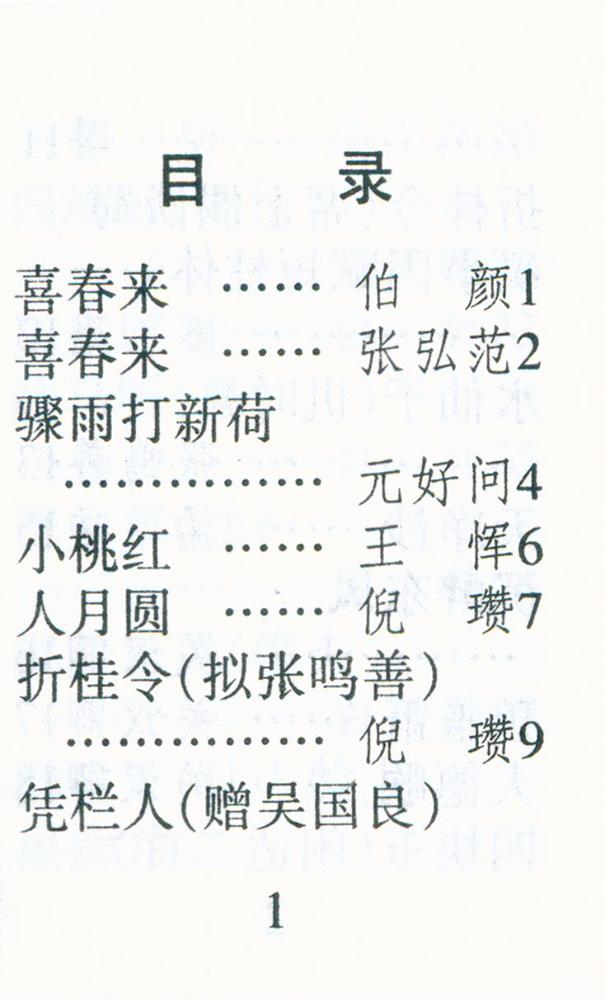 目 录
喜春来 …… 伯 颜1
喜春来 …… 张弘范2
骤雨打新荷
…………… 元好问4
小桃红 …… 王 恽6
人月圆 …… 倪 瓒7
折桂令(拟张鸣善)
…………… 倪 瓒9
凭栏人(赠吴国良)
1